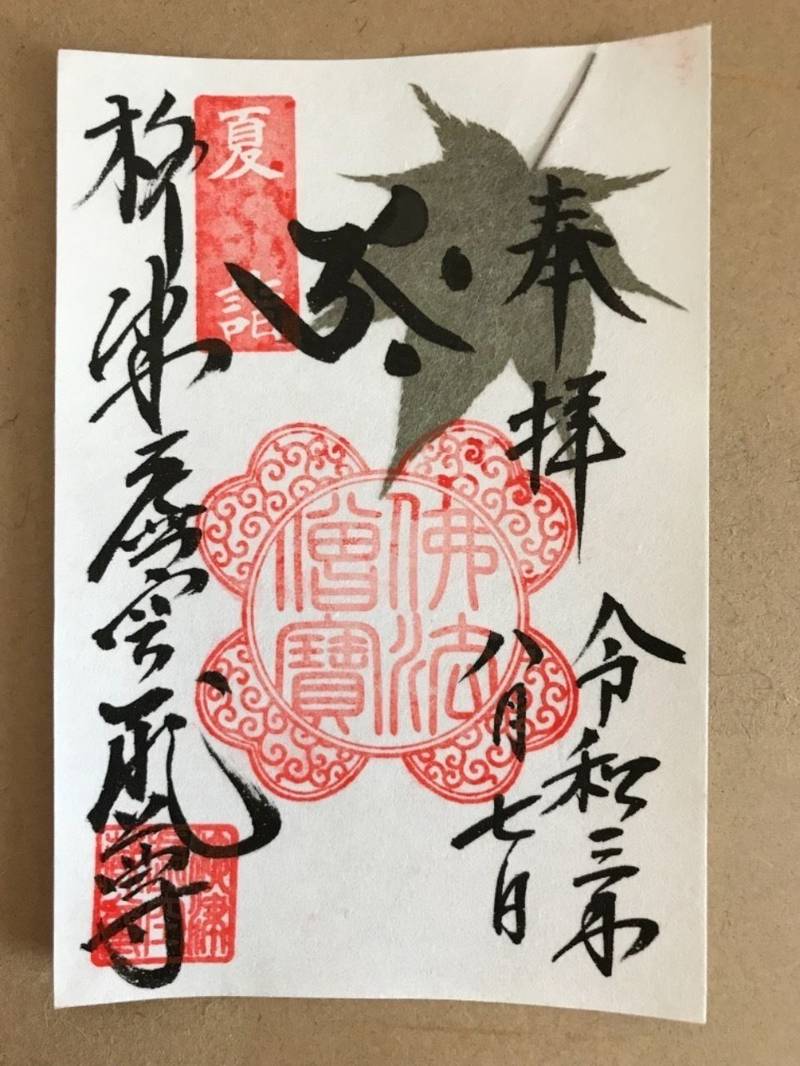 奉拝
令和三年
八月七日
佛法
僧寶
夏詣
柳津虚空蔵尊